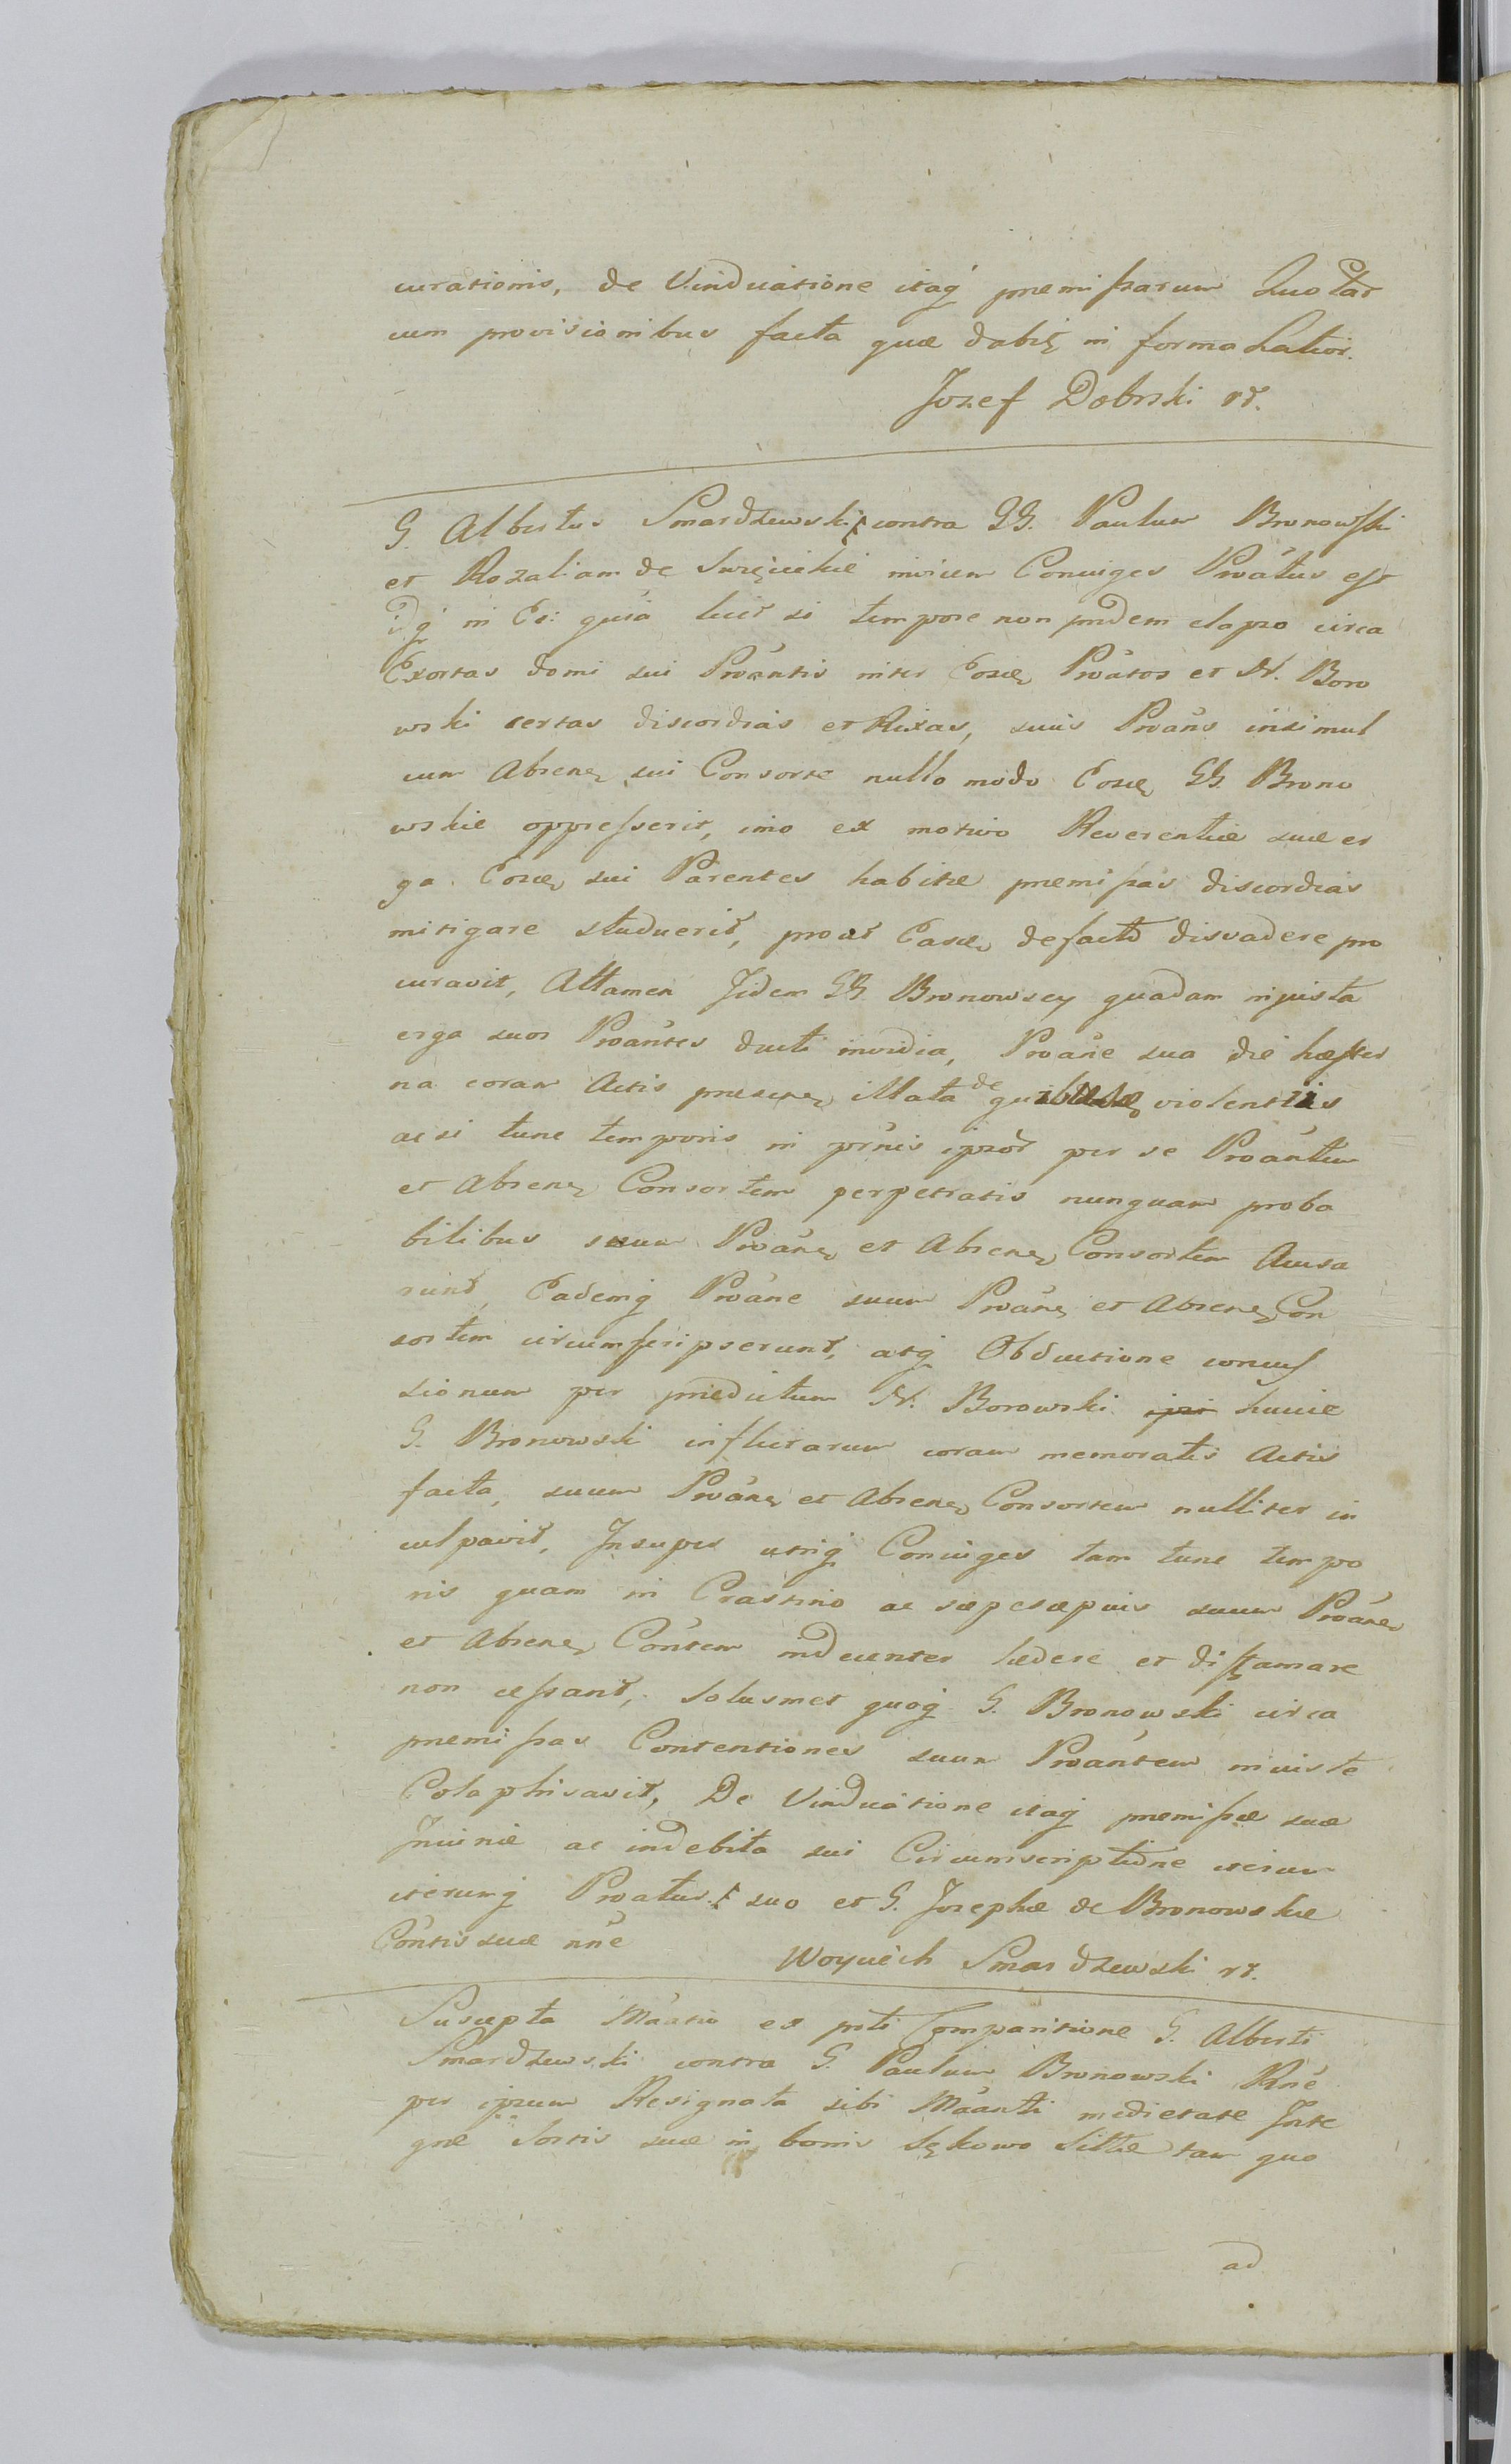 curationis, de Vinduatione itaq́ premissarum Quotar
cum provisionibus facta quæ dabit in forma Latior.
Jozef Dobrski rr.
G. Albertus Smardzewski contra GG. Paulum Bronowski
et Rozaliam de invicem Coniuges Proátus est
idq́ in Eo: quia licet si tempore non pridem elapso circa
Exortas domi sui Proántis inter Eosd Proátos et N. Boro
wski certas discordias et Rixas, suus Proáns insimul
cum Absene sui Consorte nullo modo Eosd GG. Brono
wskie oppresserit, imo ex motivo Reverentiæ suæ er
ga Eosd sui Parentes habitæ premissas discordias
mitigare studuerit, prout Easd de facto disvadere pro
curavit, Attamen Jidem GG. Bronowscy quadam injusta
erga suos Proántes ducti invidia, Proáne sua die hester
na coram Actis presene illata de violentiis
ac si tunc temporis in prńis ipsor per se Proántem
et Absene Consortem perpetratis nunquam proba
bilibus suum Proáne et Absene Consortem Accusa
runt, Eademq́ Proáne suum Proáne et Absene Con
sortem circumscripserunt, atq́ Obductione concus
sionum per prædictum N. Borowski huicce
G. Bronowski inflictarum coram memoratis Actis
facta, suum Proáne et Absene Consortem nulliter in
culpavit, Insuper utriq́ Coniuges tam tunc tempo
ris quam in Crastino ac sæpesæpius suum Proáne
et Absene Cońtem indecenter lædere et diffamare
non cessant, Solusmet quoq́ G. Bronowski circa
premissas Contentiones suum Proántem iniuste
Colaphisavit, De Vinduatione itaq́ premissæ suæ
Iniuriæ ac indebita sui Circumscriptione iterum
iterumq́ Proatus suo et G. Josephæ de Bronowskie
Cońtis suæ nńe
Woyciech Smardzewski rr.
Suscepta Máatio ex prti Comparitione G. Alberti
Smardzewski contra G. Paulum Bronowski Rńe
per ipsum Resignata sibi Máanti medietate Inte
græ Sortis suæ in bonis Sękowo Sittæ tam quo
ad